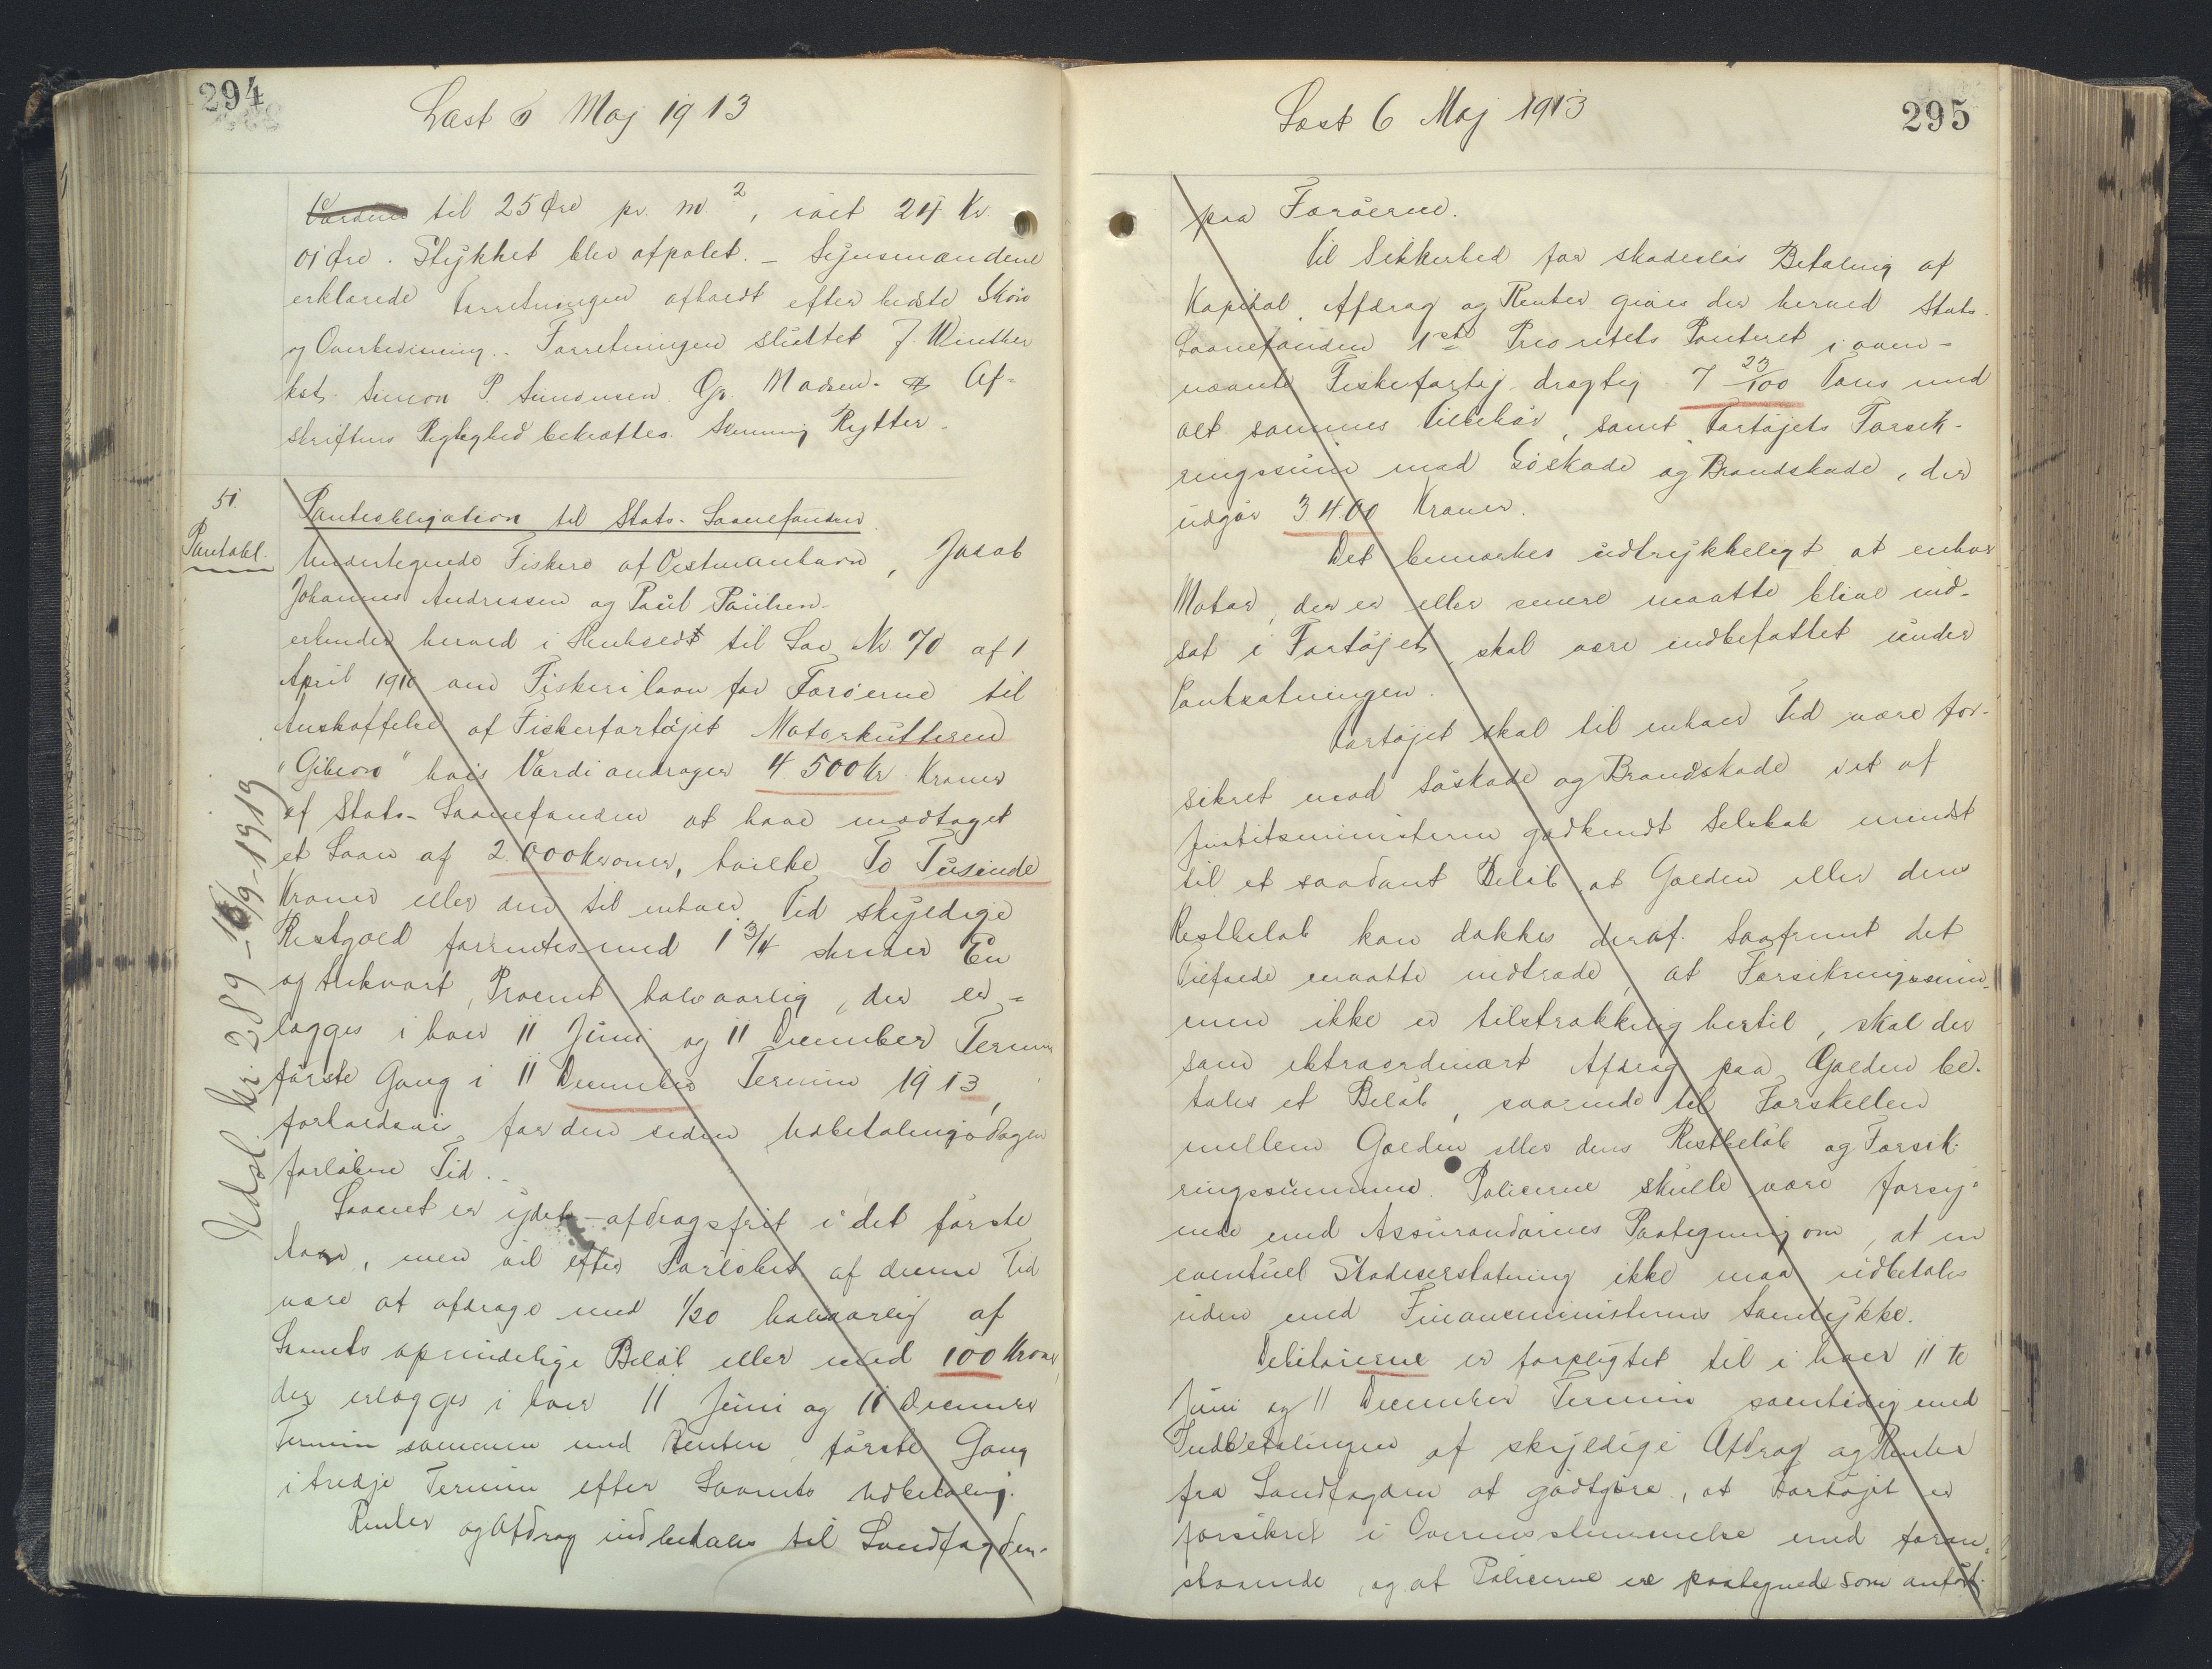 294
Læst 6 Maj 1913
Værdien til 25 Øre pr. m2, ialt 24 Kr
01 Øre. Stykket blev afpælet. – Synsmændene
erklærede Forretningen afholdt efter bedste Skøn
og Overbevisning. Forretningen sluttet J. Winther
kst. Simon P. Simonsen. Gr. Madsen. Af-
skriftens Rigtighed bekræftes. Rytter.
51.
Pantobl.
Pantobligation til Stats-Laanefonden
Undertegnede Fiskere af Vestmanhavn, Jacob
Johannes Andreasen og Poul Poulsen
erkender herved i Henhold til Lov No 70 af 1
April 1910 om Fiskerilaan for Færøerne til
Anskaffelse af Fiskerfartøjet Motorkutteren
"Gibeon" hvis Værdi andrager 4.500 Kr Kroner
af Stats-Laanefonden at have modtaget
et Laan af 2.000 Kroner, hvilke To Tusinde
Kroner eller den til enhver Tid skyldige
Restgæld forrentes med 1 3/4 skriver En
og trekvart, Procent halvaarlig, der er-
lægges i hver 11 Juni og 11 December Termin
første Gang i 11 December Termin 1913,
forholdsvis for den siden Udbetalingsdagen
forløbne Tid.
Laanet er ydet afdragsfrit i det første
Aar, men vil efter Forløbet af denne Tid
være at afdrage med 1/20 halvaarlig af
Laanets oprindelige Beløb eller med 100 Kroner
der erlægges i hver 11 Juni og 11 December
Termin sammen med Renten, første Gang
i tredje Termin efter Laanets Udbetaling.
Renter og Afdrag indbetales til Landfogden
Udsl. Nr. 289 - 16/9-1919
Læst 6 Maj 1913
295
paa Færøerne.
Til Sikkerhed for skadesløs Betaling af
Kapital, Afdrag og Renter gives der herved Stats-
Laanefonden 1ste Prioritets Panteret i oven-
nævnte Fiskefartøj drægtig 7 23/100 Tons med
alt sammes Tilbehør, samt Fartøjets Forsik-
ringssum mod Søskade og Brandskade, der
udgør 3400 Kroner.
Det bemærkes udtrykkeligt at enhver
Motor, der er eller senere maatte blive ind-
sat i Fartøjet, skal være indbefattet under
Pantsætningen.
Fartøjet skal til enhver Tid være for-
sikret mod Søskade og Brandskade i et af
Justitsministeren godkendt Selskab mindst
til et saadant Beløb, at Gælden eller dens
Restbeløb kan dækkes deraf. Saafremt det
Tilfælde maatte indtræde, at Forsikringssum-
men ikke er tilstrækkelig hertil, skal der
som extraordinært Afdrag paa Gælden be-
tales et Beløb, svarende til Forskellen
mellem Gælden eller dens Restbeløb og Forsik-
ringssummen. Policerne skulle være forsy-
nede med Assurandørernes Paategning om, at en
eventuel Skadeserstatning ikke maa udbetales
uden med Finansministerens Samtykke.
Debitorerne er forpligtet til i hver 11te
Juni og 11 December Termin samtidig med
Indbetalingen af skyldige Afdrag og Renter
fra Landfogden at godtgøre, at Fartøjet er
forsikret i Overensstemmelse med foran-
staaende, og at Policerne ere paategnede som anført.